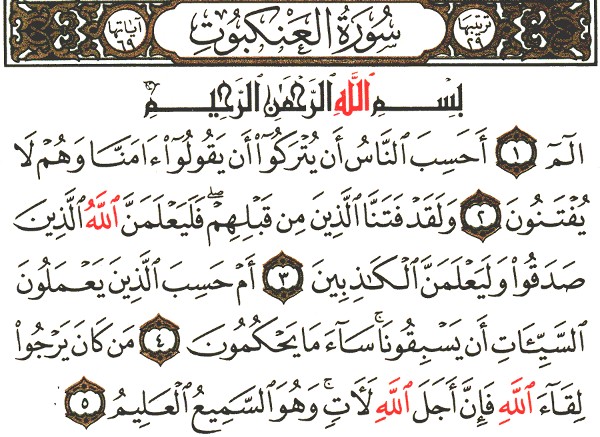 ترتيبها ٢٩ سُورَةُ العَنكَبُوتِ آياتها ٦٩
بِسْمِ اللَّهِ الرَّحْمَٰنِ الرَّحِيمِ
الٓمٓ ١ أَحَسِبَ ٱلنَّاسُ أَن يُتْرَكُوٓا۟ أَن يَقُولُوٓا۟ ءَامَنَّا وَهُمْ لَا
يُفْتَنُونَ ٢ وَلَقَدْ فَتَنَّا ٱلَّذِينَ مِن قَبْلِهِمْ ۖ فَلَيَعْلَمَنَّ ٱللَّهُ ٱلَّذِينَ
صَدَقُوا۟ وَلَيَعْلَمَنَّ ٱلْكَٰذِبِينَ ٣ أَمْ حَسِبَ ٱلَّذِينَ يَعْمَلُونَ
ٱلسَّيِّـَٔاتِ أَن يَسْبِقُونَا ۚ سَآءَ مَا يَحْكُمُونَ ٤ مَن كَانَ يَرْجُوا۟
لِقَآءَ ٱللَّهِ فَإِنَّ أَجَلَ ٱللَّهِ لَـَٔاتٍ ۚ وَهُوَ ٱلسَّمِيعُ ٱلْعَلِيمُ ٥